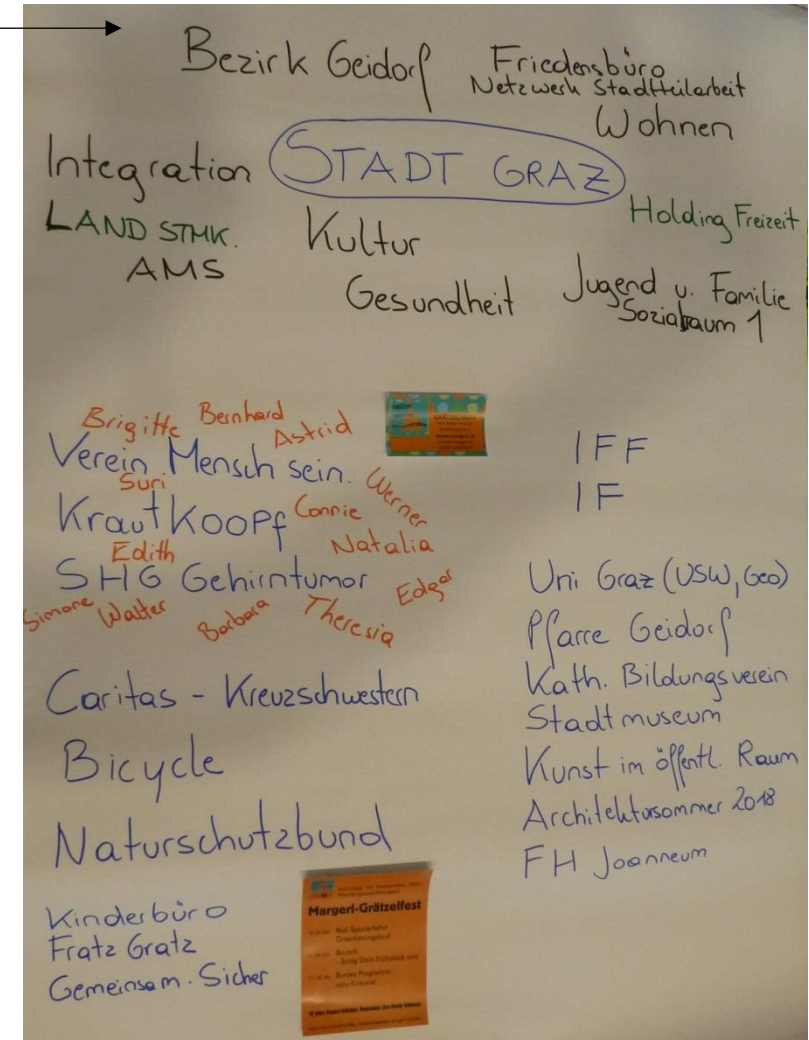 Bezirk Geidorf
Friedensbüro
Netzwerk Stadtteilarbeit
Wohnen
Integration
STADT GRAZ
LAND STMK.
Holding Freizeit
AMS
Kultur
Gesundheit
Jugend u. Familie
Sozialraum 1
Brigitte
Bernhard
Astrid
Verein Mensch sein.
Suri
Werner
KrautKOOPf
Connie
Natalia
Edith
SHG Gehirntumor
Edgar
Simone
Walter
Barbara
Theresia
Caritas - Kreuzschwestern
Bicycle
Naturschutzbund
Kinderbüro
Fratz Gratz
Gemeinsam. Sicher
IFF
IF
Uni Graz (USW, Geo)
Pfarre Geidorf
Kath. Bildungsverein
Stadtmuseum
Kunst im öffentl. Raum
Architektursommer 2018
FH Joanneum
Margerl-Grätzelfest
Orientierungslauf
Brunch
Buntes Programm